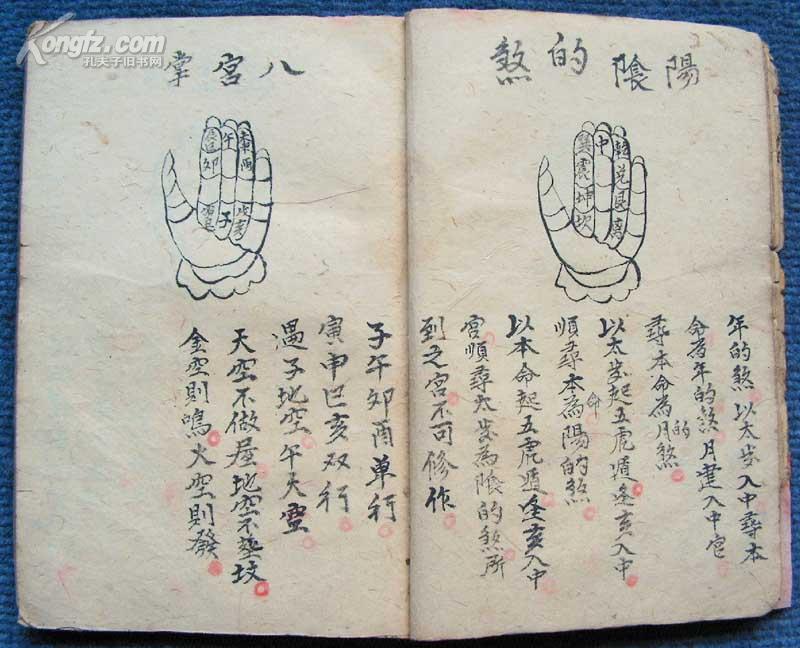 Kongfz.com
孔夫子旧书网
陽陰的煞
乾兌艮离
中
巽震坤坎
年的煞以太岁入中尋本
命為年的煞月建入中宮
尋本命為月的煞
以太岁起五虎遁逢亥入中
順尋本命為陽的煞
以本命起五虎遁逢亥入中
宮順尋太岁為陰的煞所
到之宮不可修作
八宮掌
未申酉
戌亥
午
子
辰巳卯
子午卯酉单行
寅申巳亥双行
遇子地空午天空
天空不做屋地空不塟坟
金空則鳴火空則發